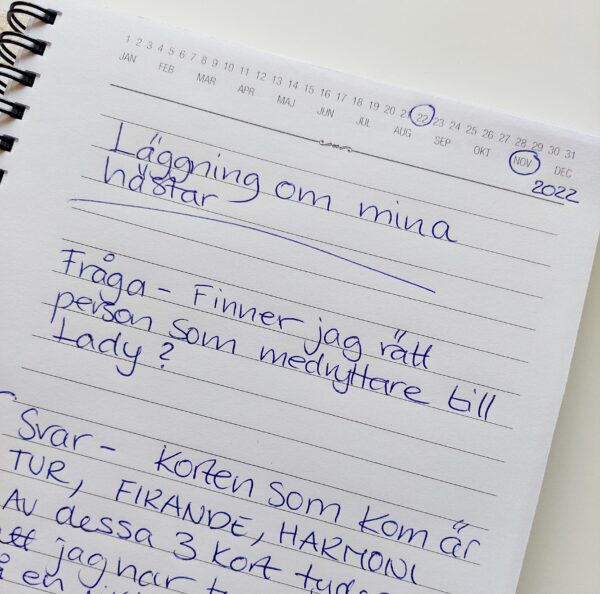 1 2 3 4 5 6 7 8 9 10 11 12 13 14 15 16 17 18 19 20 21 22 23 24 25 26 27 28 29 30 31
JAN FEB MAR APR MAJ JUN JUL AUG SEP OKT NOV DEC
2022
Läggning om mina
hästar
Fråga - Finner jag rätt
person som medryttare till
Lady?
Svar - Korten som kom är
TUR, FIRANDE, HARMONI
Av dessa 3 kort
att jag har
en